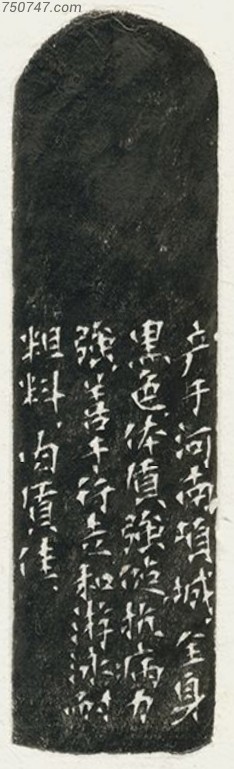 750747.com
产于河南項城，全身
黑色体质強健抗病力
強，善于行走和游泳，耐
粗料，肉質佳，